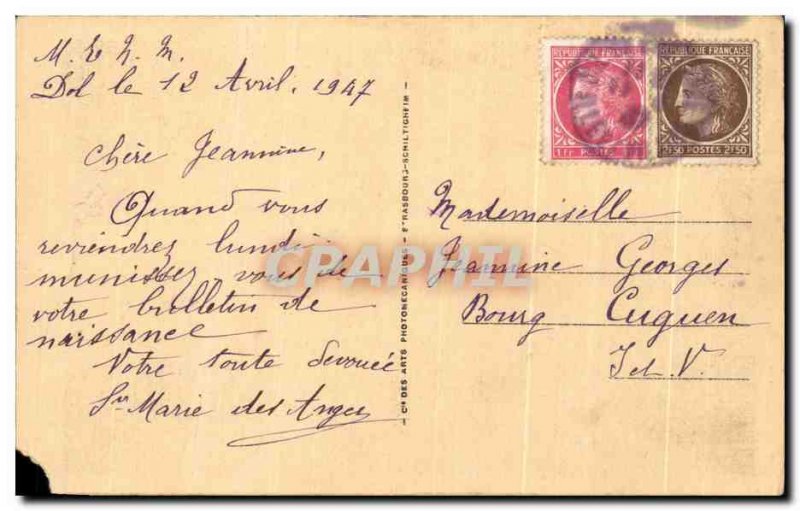 M. E. N. M.
Dol le 12 Avril. 1947
Chère Jeannine,
Quand vous
reviendrez lundi
munissez-vous de
votre bulletin de
naissance
Votre toute dévouée
Sr Marie des Anges
Cie DES ARTS PHOTOMÉCANIQUES - STRASBOURG-SCHILTIGHEIM
RÉPUBLIQUE FRANÇAISE
1 Fr POSTES
RÉPUBLIQUE FRANÇAISE
2F50 POSTES 2F50
Mademoiselle
Jeannine Georges
Bourg Cuguen
I et V.
CPAPHIL